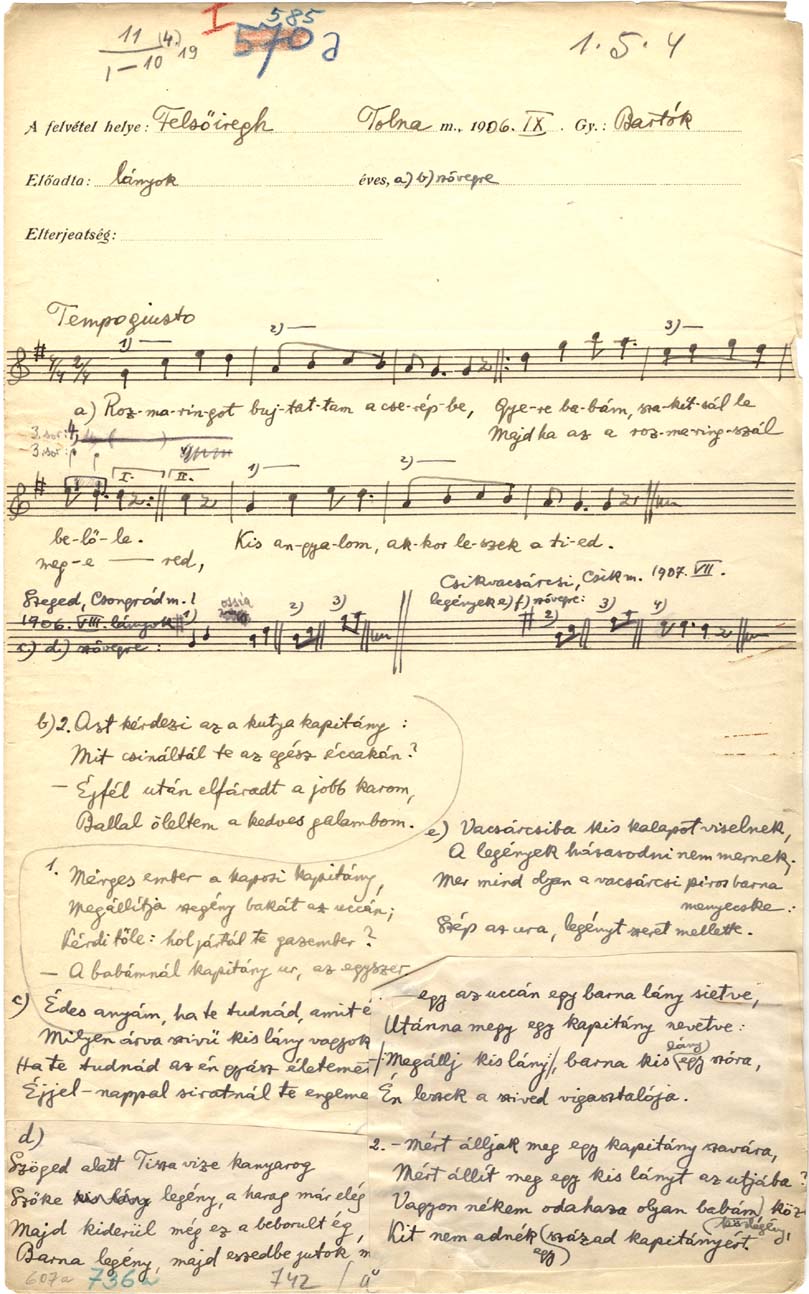 11 (4.) 19
1–10
I
585
570 a
1. 5. 4
A felvétel helye: Felsőiregh Tolna m., 1906. IX. Gy.: Bartók
Előadta: lányok éves, a) b) szövegre
Elterjedtség:
Tempo giusto
1) 2) 3)
a) Roz-ma-rin-got buj-tat-tam a cse-rép-be, Gye-re ba-bám, sza-kit-sál le
Majd ha az a roz-ma-ring-szál
3. sor: 4
3. sor:
I. II. 1) 2)
be-lő-le. Kis an-gya-lom, ak-kor le-szek a ti-ed.
meg-e red,
Szeged, Csongrád m.!
1906. VIII. lányok
c) d) szövegre:
1) ossia 2) 3)
Csikvacsárcsi, Csik m. 1907. VII.
legények e) f) szövegre:
2) 3) 4)
b) 2. Azt kérdezi az a kutya kapitány:
Mit csináltál te az egész éccakán?
– Éjfél után elfáradt a jobb karom,
Ballal öleltem a kedves galambom.
1. Mérges ember a kaposi kapitány,
Megállítja szegény bakát az uccán;
Kérdi tőle: hol jártál te gazember?
– A babámnál kapitány ur, az egyszer
e) Vacsárcsiba kis kalapot viselnek,
A legények házasodni nem mernek;
Mer mind olyan a vacsárcsi piros barna
menyecske:
Szép az ura, legényt szeret mellette.
c) Édes anyám, ha te tudnád, amit é
Milyen árva szivü kis lány vagyok
Ha te tudnád az én gyász életeme
Éjjel-nappal siratnál te engeme
egy az uccán egy barna lány sietve,
Utánna megy egy kapitány nevetve:
/:Megállj kis lány:/, barna kis (egy szóra,
lány)
Én leszek a szived vigasztalója.
d)
Szöged alatt Tisza vize kanyarog
Szőke kis lány legény, a harag már elég
Majd kiderül még ez a beborult ég,
Barna legény, majd eszedbe jutok m
2. – Mért álljak meg egy kapitány szavára,
Mért állít meg egy kis lányt az utjába?
Vagyon nékem odahaza olyan babám, köz
Kit nem adnék (század kapitányért.
egy)
607a 736a 742 / a